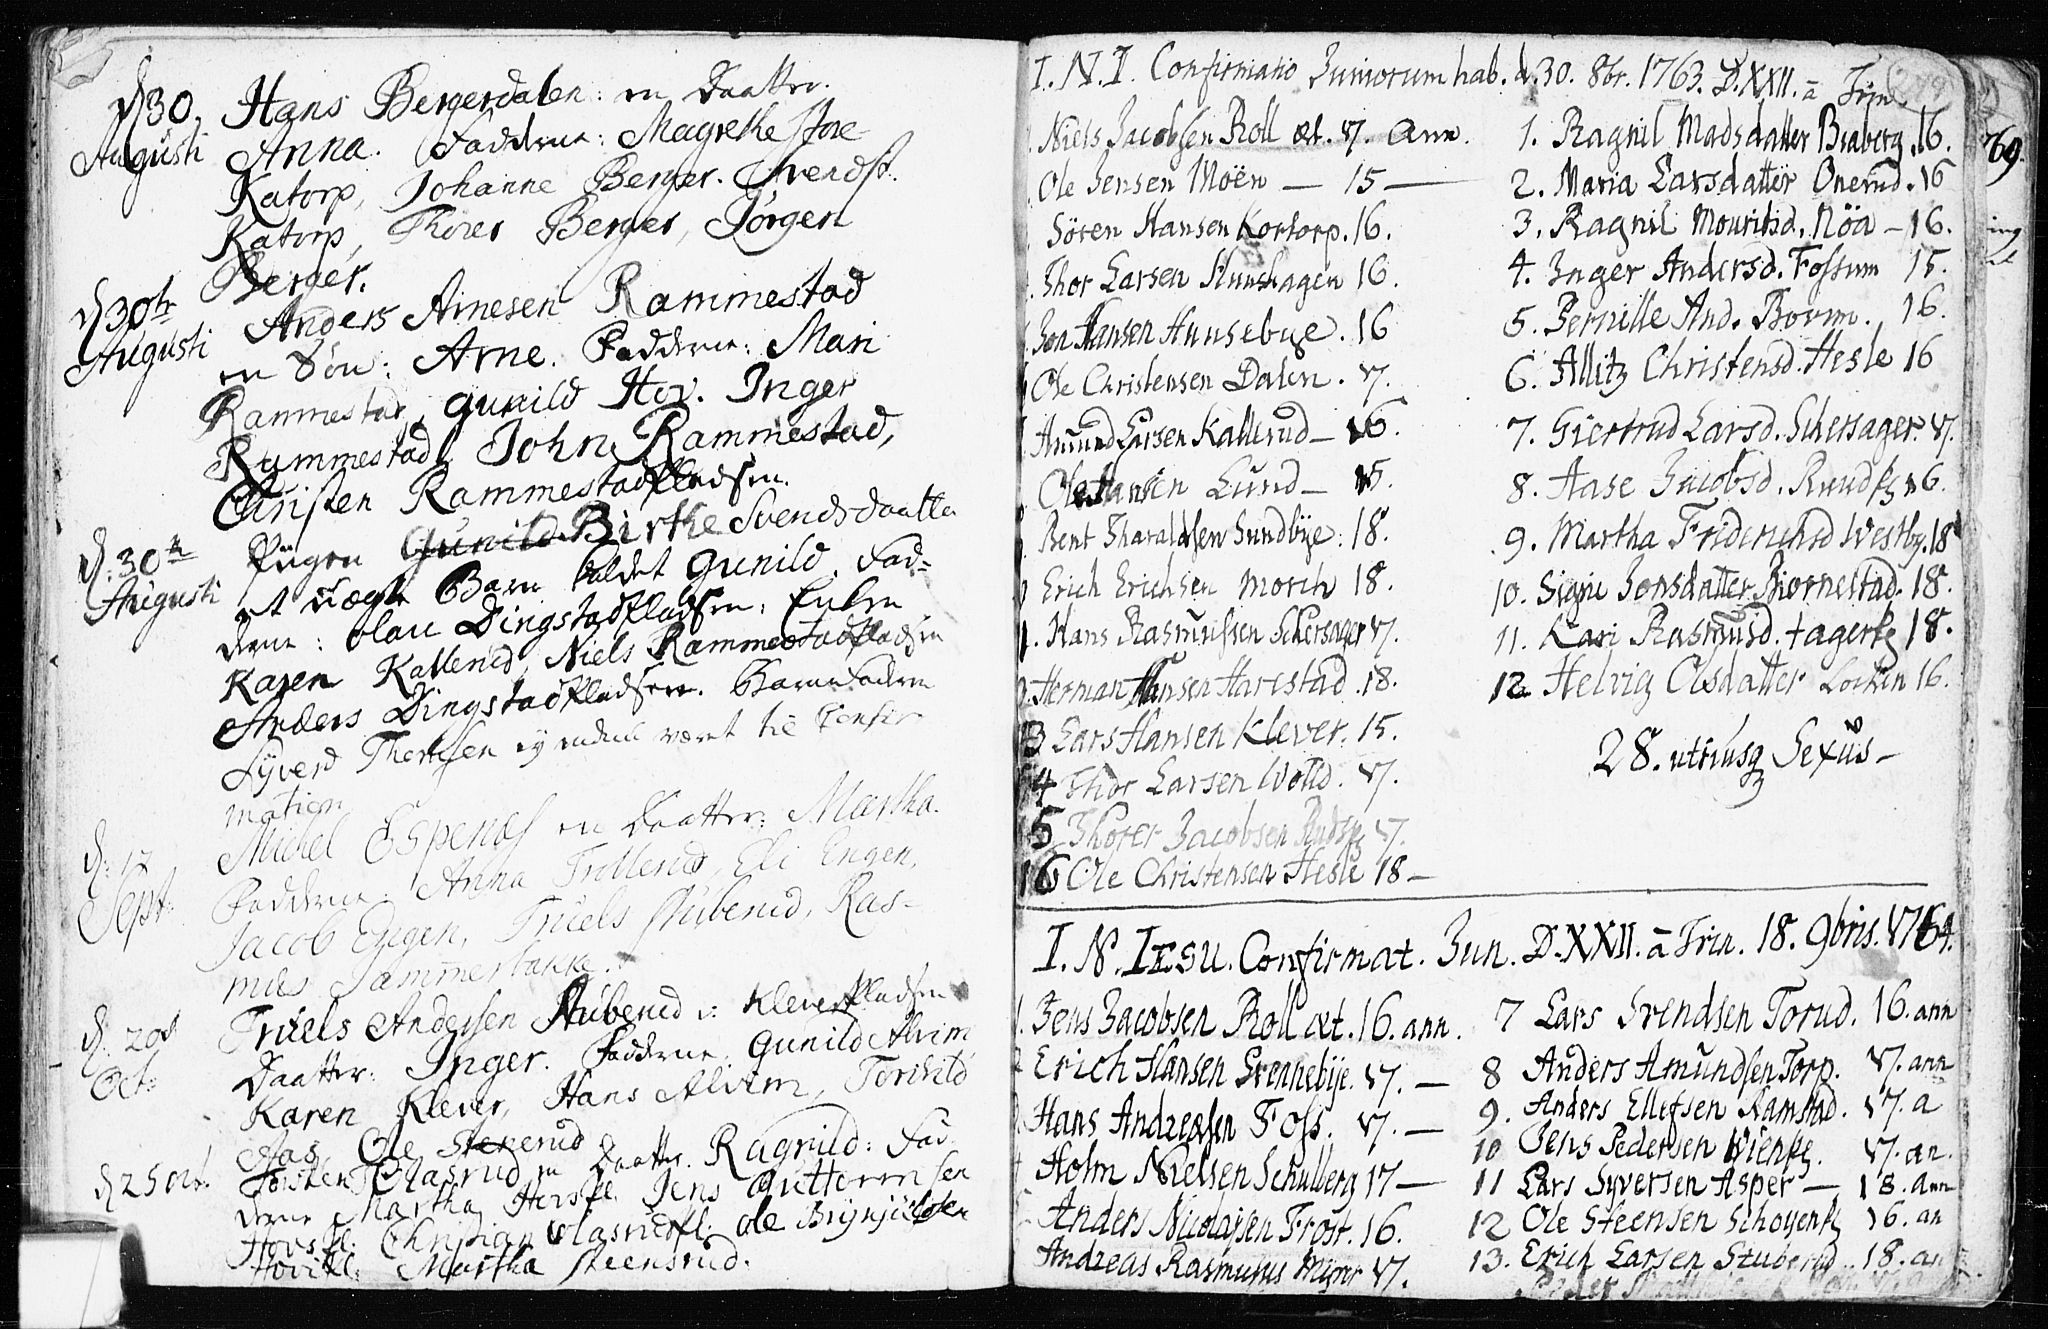 d 30. Hans Bergerdalen: en Daatter.
Augusti Anna. Faddere: Magrethe store
Katorp, Johanne Berger. Svends
Katorp, Thorer Berger, Jörgen
Berger.
d 30te Anders Arnesen Rammestad
Augusti en Sön: Arne. Faddere: Mari
Rammestad, Gunild Hov. Inger
Rammestad, John Rammestad,
Christen Rammestadpladsen.
d: 30te Pigen Birthe Svendsdaatter
Augusti et uægte Barn kaldet Gunild. Fad-
dere: Olau Dingstadpladsen: Enken
Karen Kallerud, Niels Rammestadpladsen
Anders Dingstadpladsen. Barnefaderen
Syverd Thorsen ej endnu været til Confir
mation
d: 12 Michel Espenes en Daatter: Martha.
Sept: Faddere: Anna Trillerud, Eli Engen,
Jacob Engen, Truels Stuberud, Ras-
mus Sammerbakke.
d. 20de Truels Andersen Stuberud v: Kleverpladsen
Oct: Daatter: Inger. Faddere. Gunild Alvim
Karen Klever, Hans Alvim, Torkild
Aas, Ole Stenerud
d 25 Oct. Torsten Olasrud en Daatter. Ragnild: Fad-
dere Martha Jens Guttormsen
Christian Olasrudpl. Ole Brynjuelsen
Martha Steensrud.
I. N. I. Confirmatio Juniorum hab. d. 30. 8br. 1763. D. XXII. a Trin.
244
Niels Jacobsen Roll æt. 17. Ann.
Ole Jensen Moën — 15 —
Sören Hansen Kortorp. 16.
Thor Larsen Huushagen 16.
Jon Hansen Huusebye. 16
Ole Christensen Dalen. 17.
Amund Larsen Kallerud — 16.
Ole Hansen Lund — 15.
Bent Tharaldsen Sundbye: 18.
Erich Erichsen Morch 18.
11. Hans Rasmussen Schersager 17.
Herman Hansen Harestad. 18.
13 Lars Hansen Klever. 15.
14 Thor Larsen Wolld. 17.
15 Thorer Jacobsen Rudspl 17.
16 Ole Christensen Hesle 18 —
1. Ragnil Madsdatter Braberg. 16.
2. Maria Larsdatter Onerud. 16
3. Ragnil Mouritsd. Nöa — 16.
4. Inger Andersd. Fossum 15.
5. Pernille And. Borm. 16.
6. Allitz Christensd. Hesle 16
7. Giertrud Larsd. Schersager. 17.
8. Aase Jacobsd. Ruudpl 16.
9. Martha Friderichsd Westby. 18
10. Signe Jonsdatter Biornestad. 18.
11. Kari Rasmusd. Hagerpl 18.
12 Helvig Olsdatter Locken 16.
28. utriusq Sexus —
I. N. IESU. Confirmat. Jun. D. XXII. a Trin. 18. 9bris. 1764.
1. Jens Jacobsen Roll æt. 16. ann.
2 Erich Hansen Grennebye. 17. —
Hans Andreasen Foss. 17. —
Holm Nielsen Schulberg 17 —
Anders Nicolajsen Frost. 16.
Andreas Rasmusus Myrer 17.
7 Lars Svendsen Torud. 16. ann
8 Anders Amundsen Torp. 17. ann
9. Anders Ellefsen Ramstad. 17. a
10 Jens Pedersen Wienpl. 17. an.
11 Lars Syversen Asper — 18. Ann
12 Ole Steensen Schoyenpl 16. an
13. Erich Larsen Stuberud.. 18. an
69.